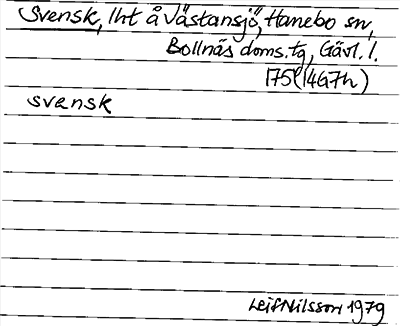 Svensk, lht å Västansjö, Hanebo sn,
Bollnäs doms.tg, Gävl. l.
175 (14G7h)
svensk
Leif Nilsson 1979